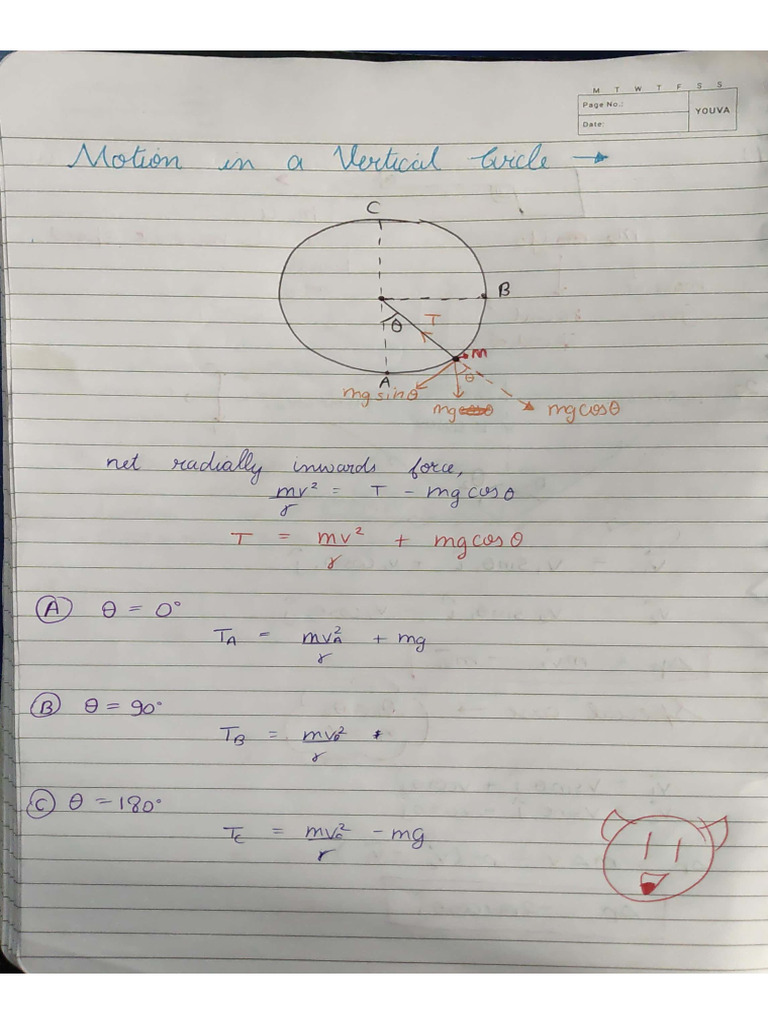 M T W T F S S
Page No.:
YOUVA
Date:
Motion in a Vertical Circle →
C
B
θ
T
M
A
θ
mg sinθ
mg
mg cosθ
net radially inwards force,
mv²/r = T - mg cosθ
T = mv²/r + mg cosθ
(A) θ = 0°
T_A = mv_A²/r + mg
(B) θ = 90°
T_B = mv_B²/r
(C) θ = 180°
T_C = mv_C²/r - mg